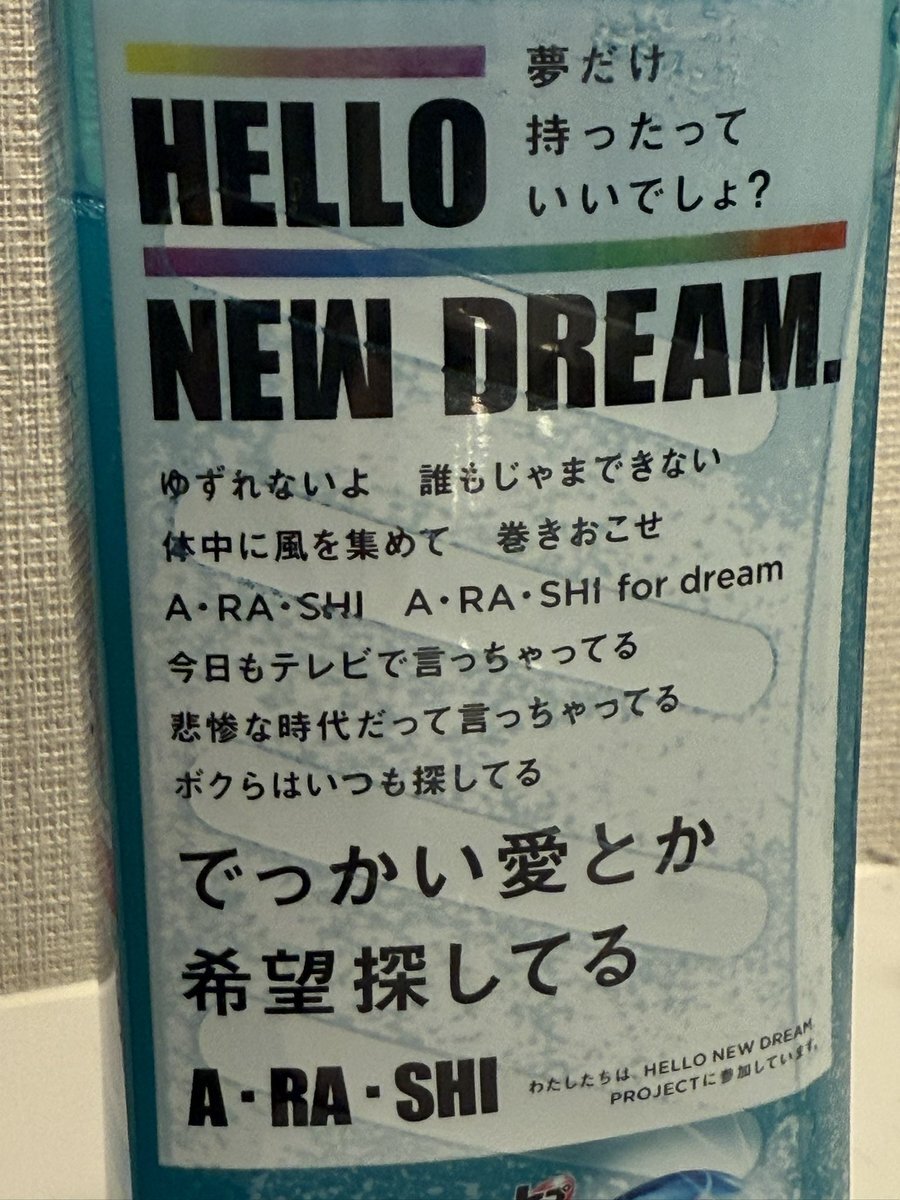 HELLO
夢だけ
持ったって
いいでしょ?
NEW DREAM.
ゆずれないよ　誰もじゃまできない
体中に風を集めて　巻きおこせ
A・RA・SHI　A・RA・SHI for dream
今日もテレビで言っちゃってる
悲惨な時代だって言っちゃってる
ボクらはいつも探してる
でっかい愛とか
希望探してる
A・RA・SHI
わたしたちは、HELLO NEW DREAM.
PROJECTに参加しています。